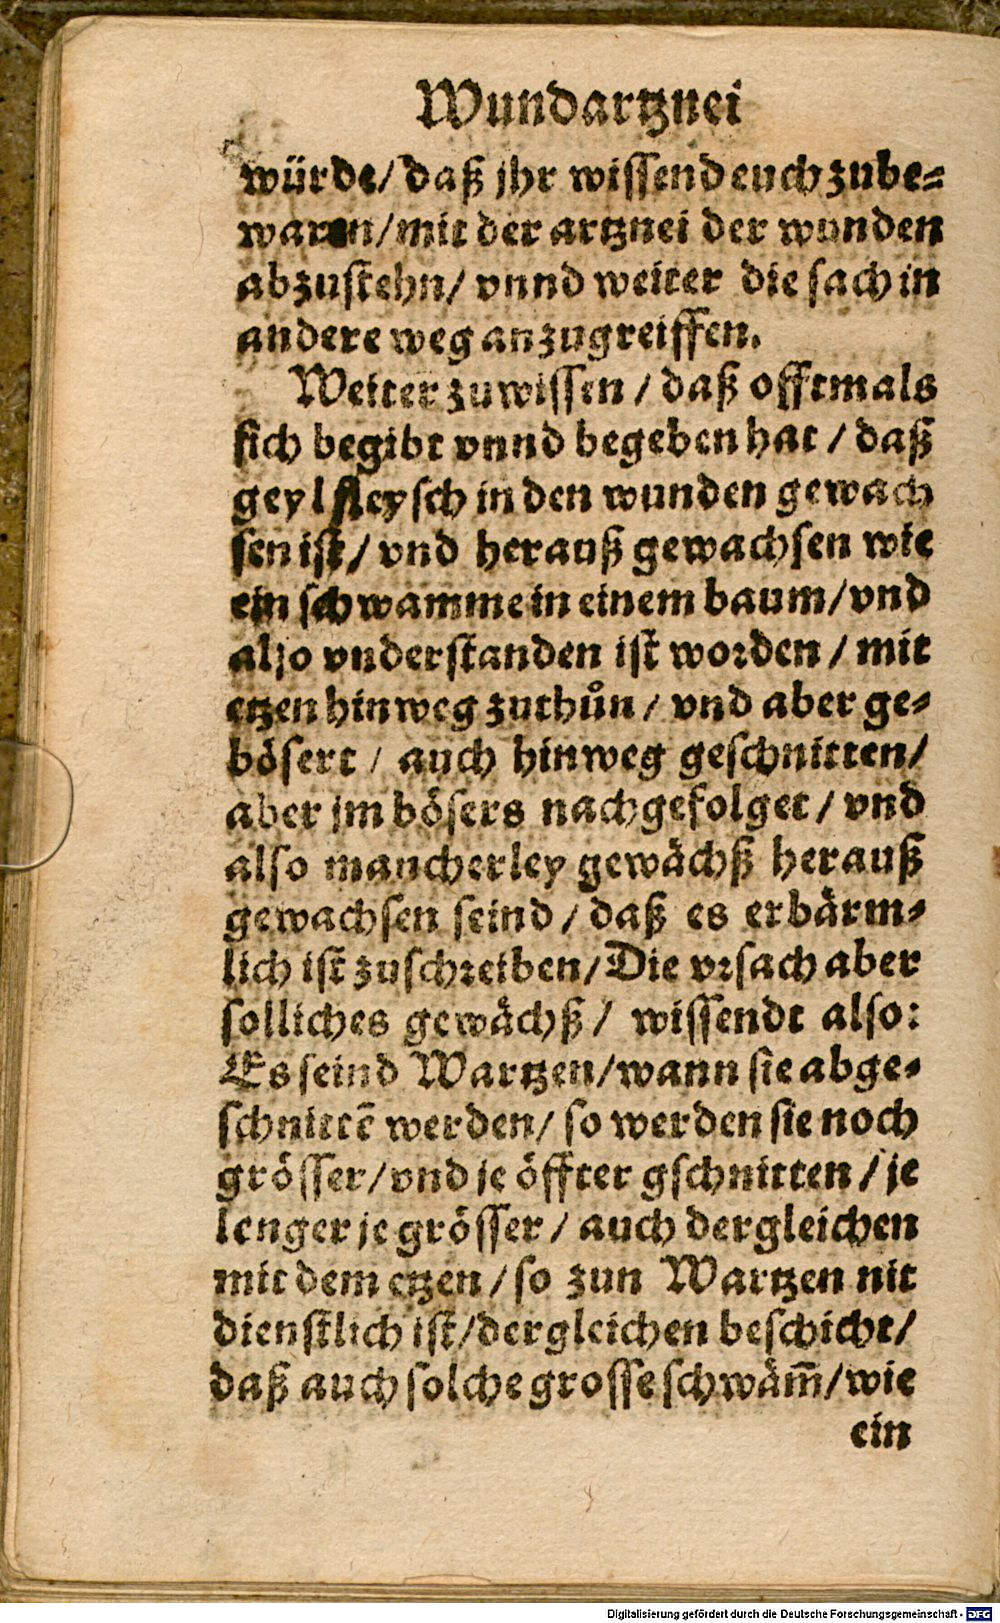 Wundartznei
würde/ daß jhr wissend euch zube-
waren/ mit der artznei der wunden
abzustehn/ vnnd weiter die sach in
andere weg anzugreiffen.
Weiter zuwissen / daß offtmals
sich begibt vnnd begeben hat / daß
geyl fleysch in den wunden gewach
sen ist/ vnd herauß gewachsen wie
ein schwamme in einem baum/ vnd
also vnderstanden ist worden / mit
etzen hinweg zuthůn / vnd aber ge-
bösert / auch hinweg geschnitten/
aber jm bösers nachgefolget / vnd
also mancherley gewächß herauß
gewachsen seind / daß es erbärm-
lich ist zuschreiben/ Die vrsach aber
solliches gewächß / wissendt also:
Es seind Wartzen/ wann sie abge-
schnittē werden/ so werden sie noch
grösser/ vnd je öffter gschnitten / je
lenger je grösser / auch dergleichen
mit dem etzen / so zun Wartzen nit
dienstlich ist/ dergleichen beschicht/
daß auch solche grosse schwäm̄/ wie
ein
Digitalisierung gefördert durch die Deutsche Forschungsgemeinschaft - DFG